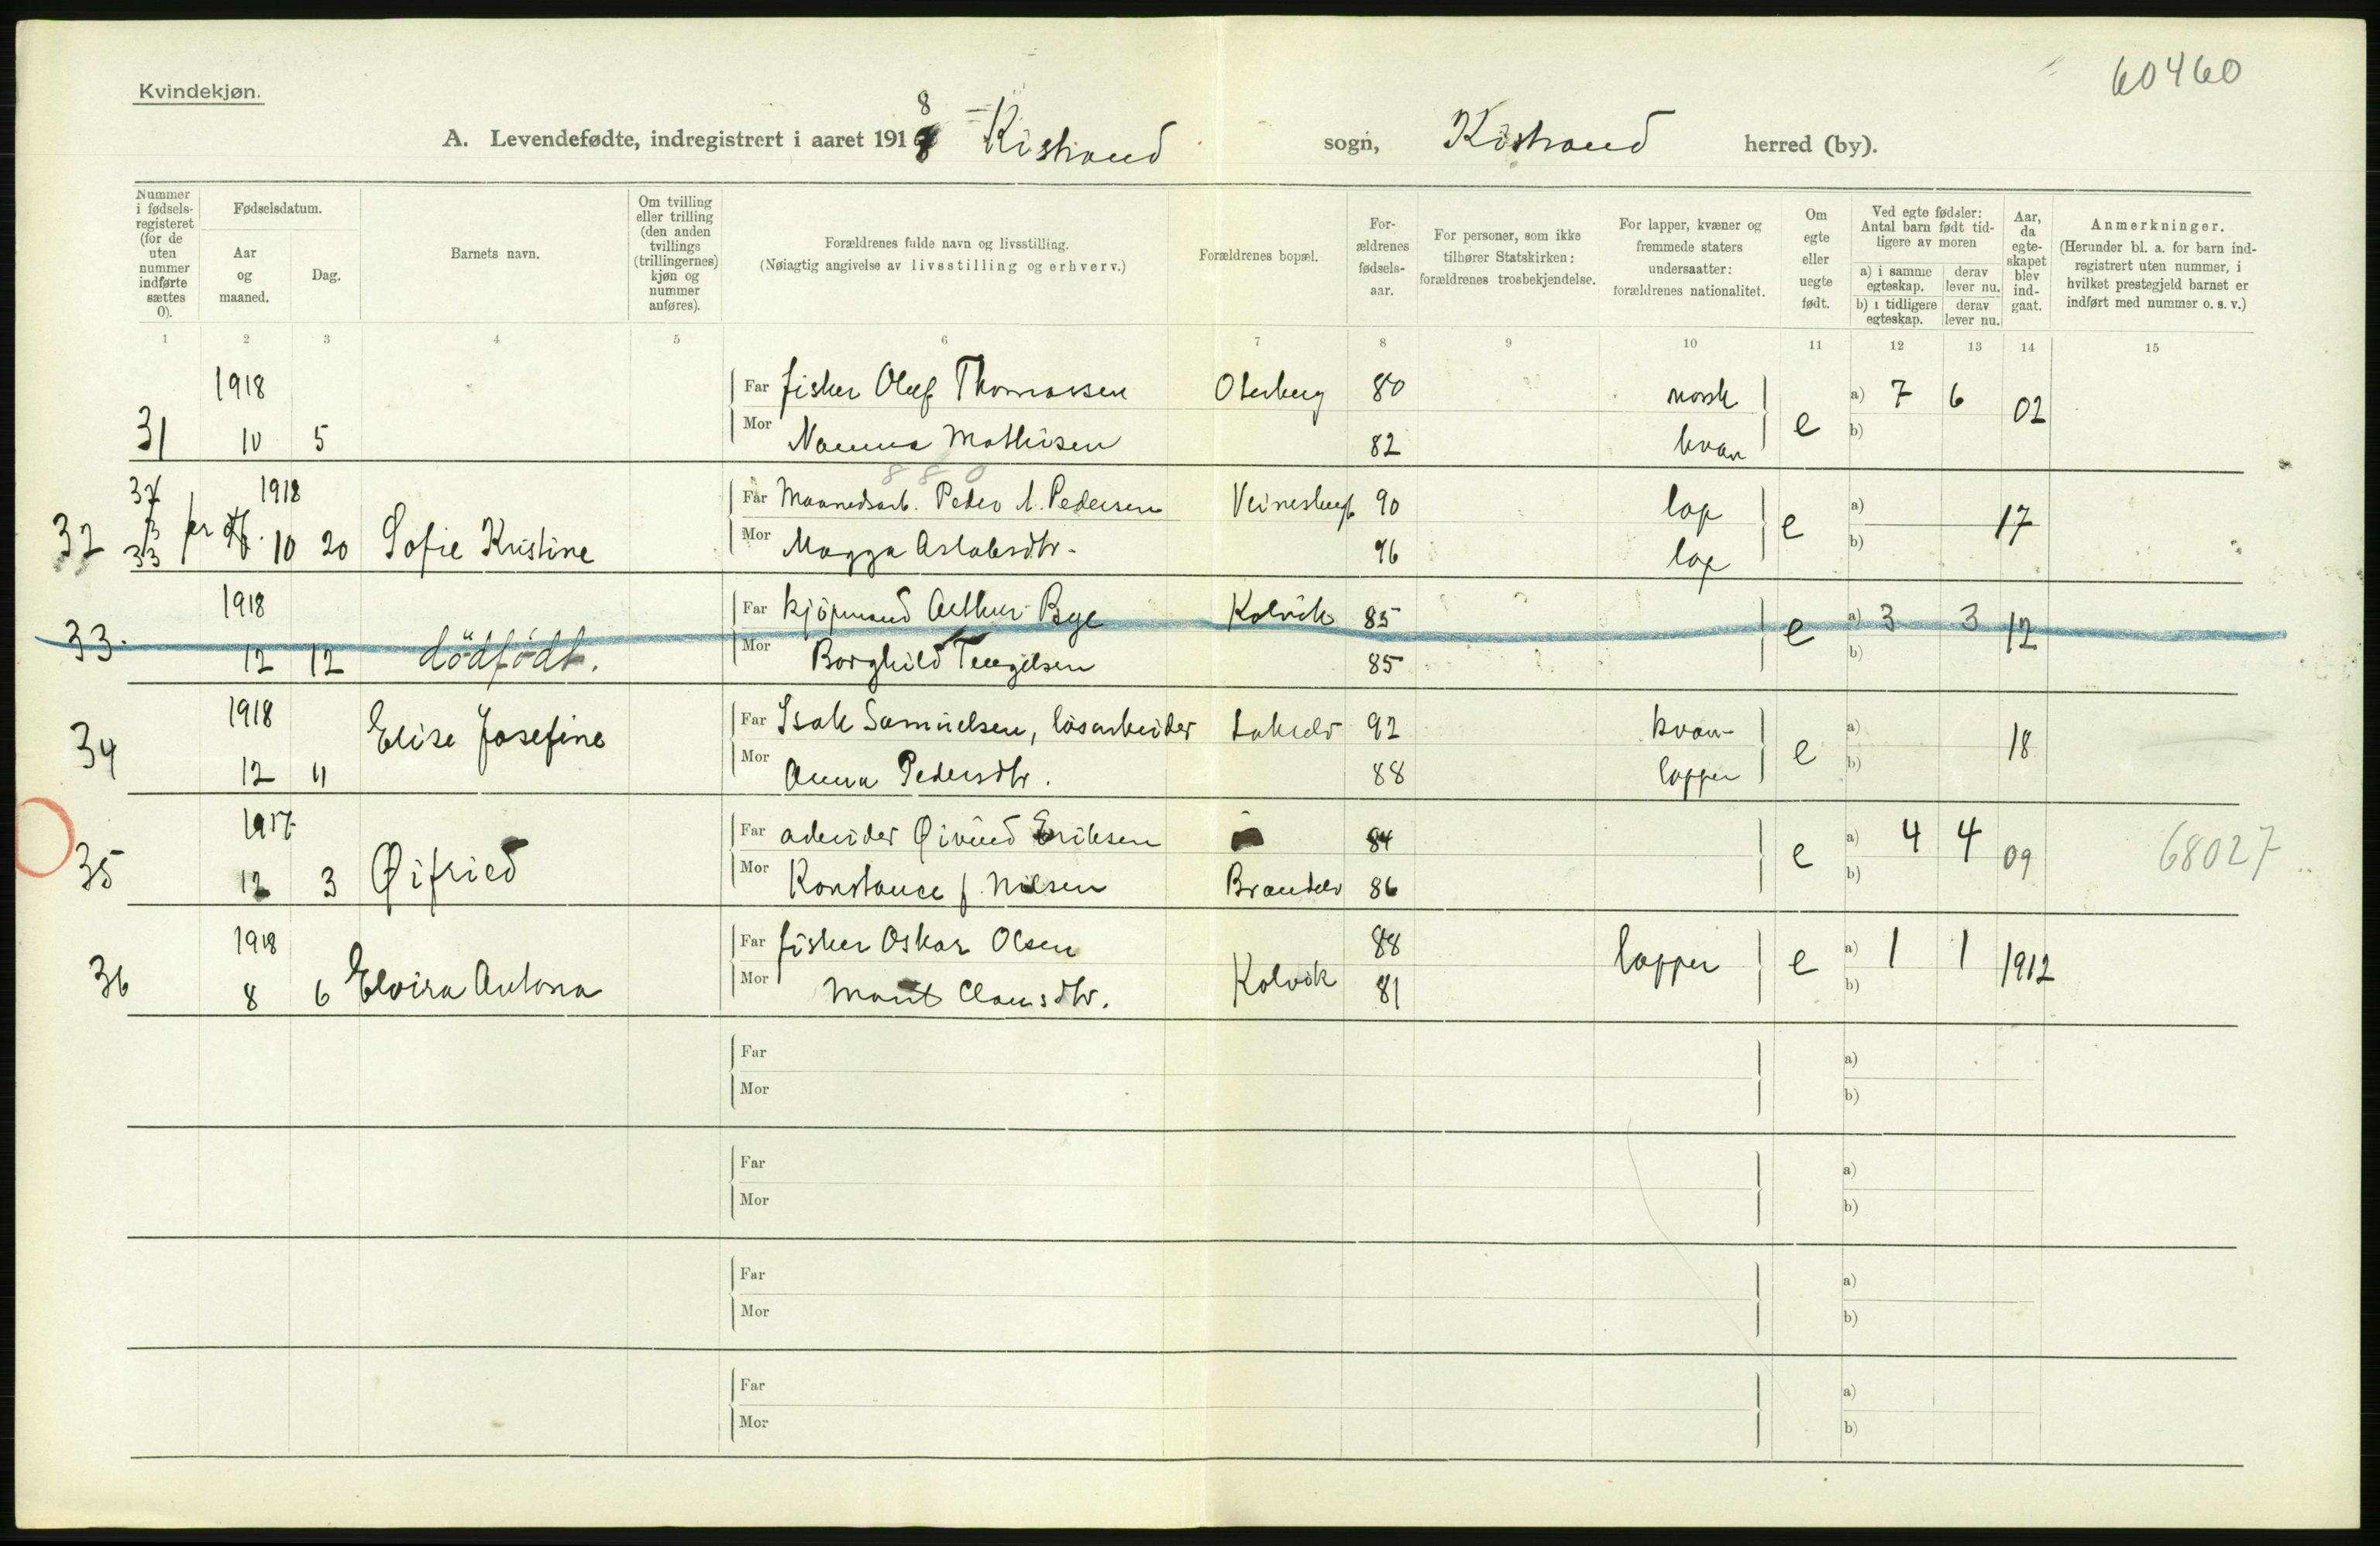 60460
Kvindekjøn.
A. Levendefødte, indregistrert i aaret 1918 Kistrand sogn, Kistrand herred (by).
Nummer i fødsels-registeret (for de uten nummer indførte sættes 0).
Fødselsdatum.
Aar og maaned.
Dag.
Barnets navn.
Om tvilling eller trilling (den anden tvillings (trillingernes) kjøn og nummer anføres).
Forældrenes fulde navn og livsstilling.
(Nøiagtig angivelse av livsstilling og erhverv.)
Forældrenes bopæl.
For-ældrenes fødsels-aar.
For personer, som ikke tilhører Statskirken: forældrenes trosbekjendelse.
For lapper, kvæner og fremmede staters undersaatter: forældrenes nationalitet.
Om egte eller uegte født.
Ved egte fødsler: Antal barn født tid-ligere av moren
a) i samme egteskap.
derav lever nu.
b) i tidligere egteskap.
derav lever nu.
Aar, da egte-skapet blev ind-gaat.
Anmerkninger.
(Herunder bl. a. for barn ind-registrert uten nummer, i hvilket prestegjeld barnet er indført med nummer o. s. v.)
1 2 3 4 5 6 7 8 9 10 11 12 13 14 15
1918 Far fisker Oluf Thomassen 80 norsk a) 7 6 02
31 10 5 Mor Nanna Mathisen 82 kvæn e b)
880
1918 Far Maanedsarb. Peder A. Pedersen 90 lap a)
32 33 10 20 Sofie Kristine Mor Magga Aslaksdtr. 96 lap e b) 17
1918 Far kjöpmand Arthur Bye Kolvik 85 a) 3 3 12
33. 12 12 dödfödt. Mor Borghild Tengelsen 85 e b)
1918 Far Isak Samuelsen, løsarbeider Lakselv 92 kvæn a)
34 12 11 Elise Josefine Mor Anna Pedersdtr. 88 lapper e b) 18
1917 Far arbeider Øivind Eriksen 84 a) 4 4 09
35 12 3 Øifried Mor Konstance J. Nilsen Brændelv 86 e b) 68027
1918 Far fisker Oskar Olsen 88 lapper e a) 1 1 1912
36 8 6 Elvira Antona Mor Marit Clausdtr. Kolvik 81 b)
Far a)
Mor b)
Far a)
Mor b)
Far a)
Mor b)
Far a)
Mor b)